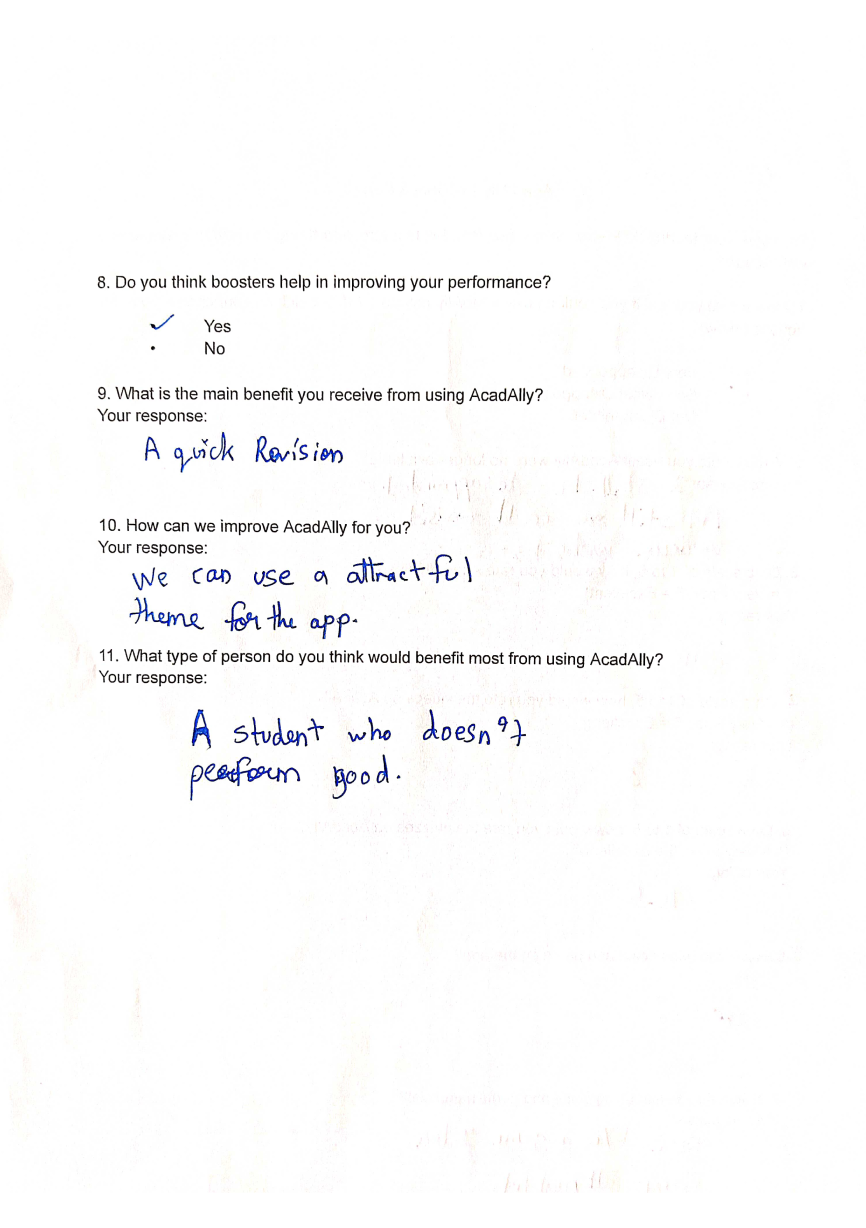 8. Do you think boosters help in improving your performance?
✓ Yes
• No
9. What is the main benefit you receive from using AcadAlly?
Your response:
A quick Revision
10. How can we improve AcadAlly for you?
Your response:
We can use a attractful
theme for the app.
11. What type of person do you think would benefit most from using AcadAlly?
Your response:
A student who doesn't
perform good.